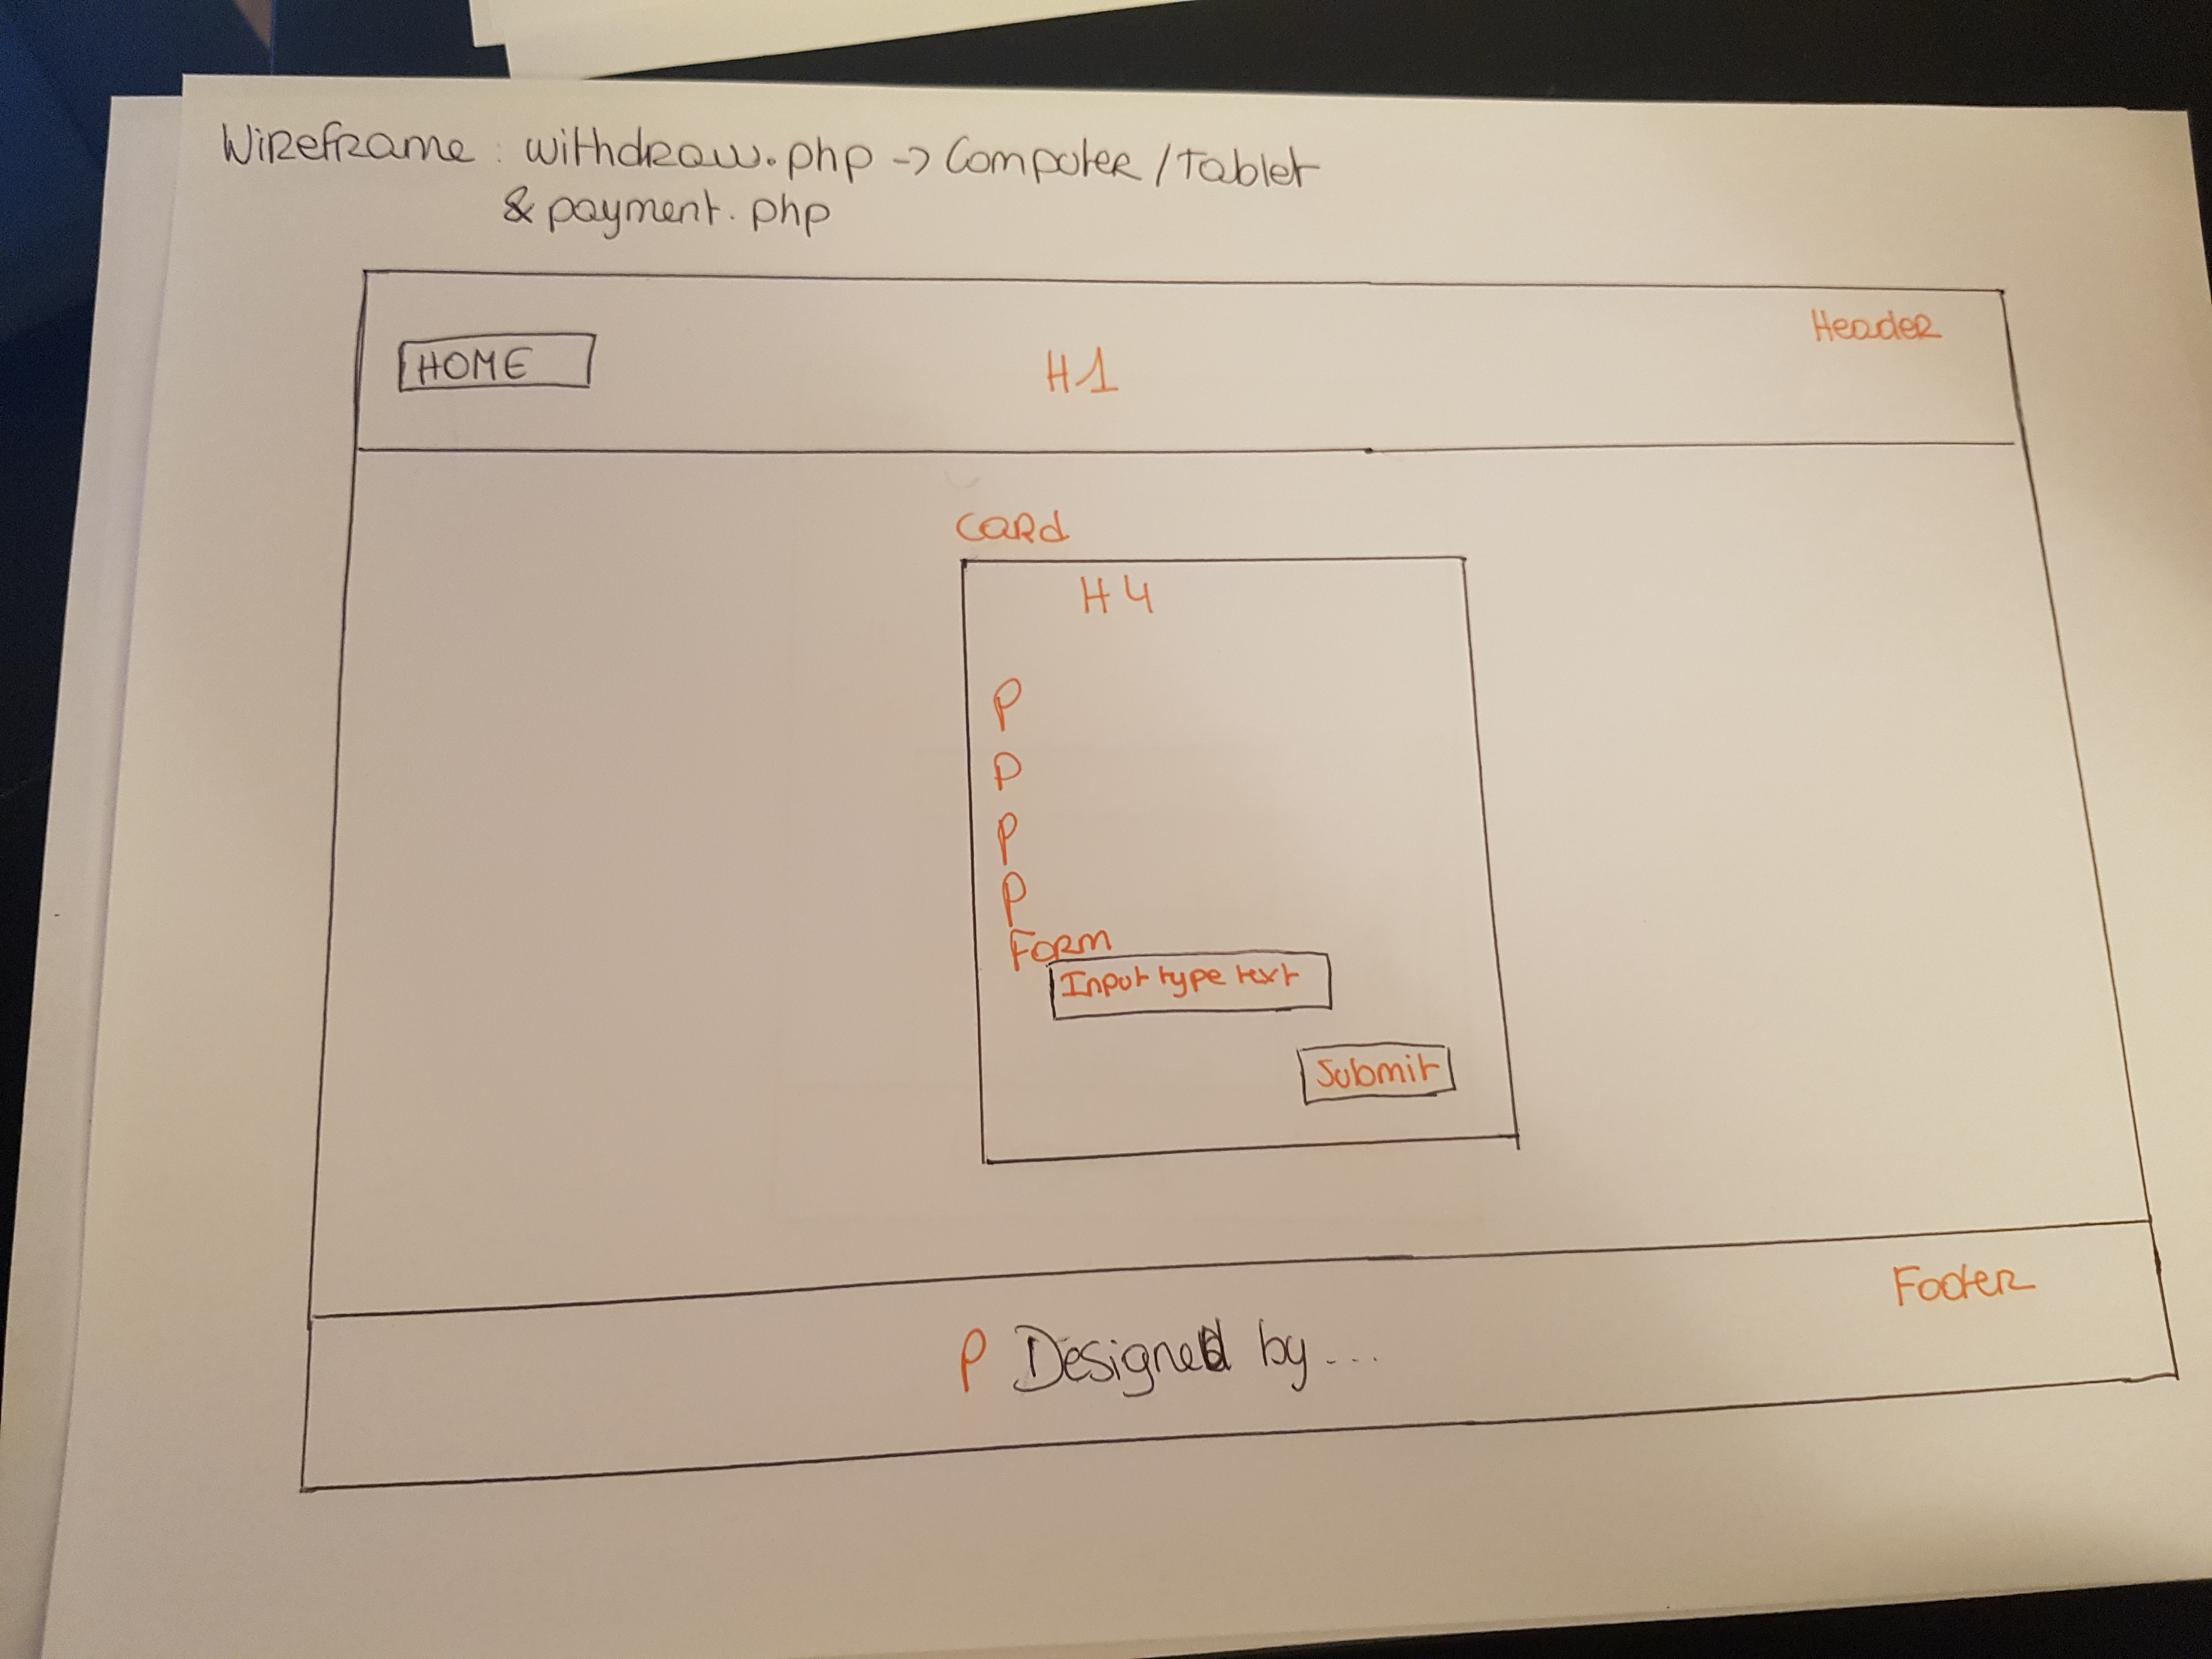 Wireframe : withdraw.php -> Computer / Tablet
& payment.php
Header
HOME
H1
Card
H4
P
P
P
P
Form
Input type text
Submit
Footer
P Designed by...